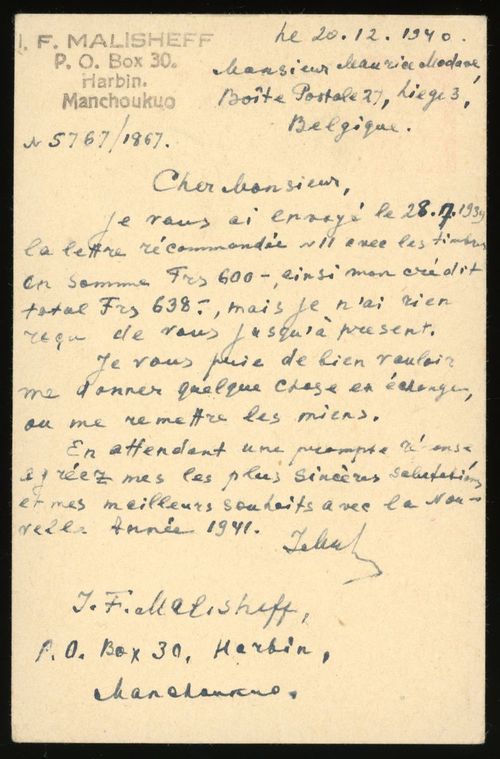 I. F. MALISHEFF
P. O. Box 30.
Harbin.
Manchoukuo
Le 20.12.1940.
Monsieur Maurice Modave,
Boîte Postale 27, Liege 3,
Belgique.
N 5767/1867.
Cher Monsieur,
Je vous ai envoyé le 28.7.1939
la lettre récommandée N11 avec les timbres
en somme Frs 600-, ainsi mon crédit
total Frs 638.-, mais je n'ai rien
reçu de vous jusquià present.
Je vous prie de bien vouloir
me donner quelque chose en échange,
ou me remettre les miens.
En attendant une prompte réponse
agréez mes les plus sincères salutations
et mes meilleurs souhaits avec la Nou-
velle Année 1941.
I. F. Malisheff,
P.O. Box 30, Harbin,
Manchoukuo.